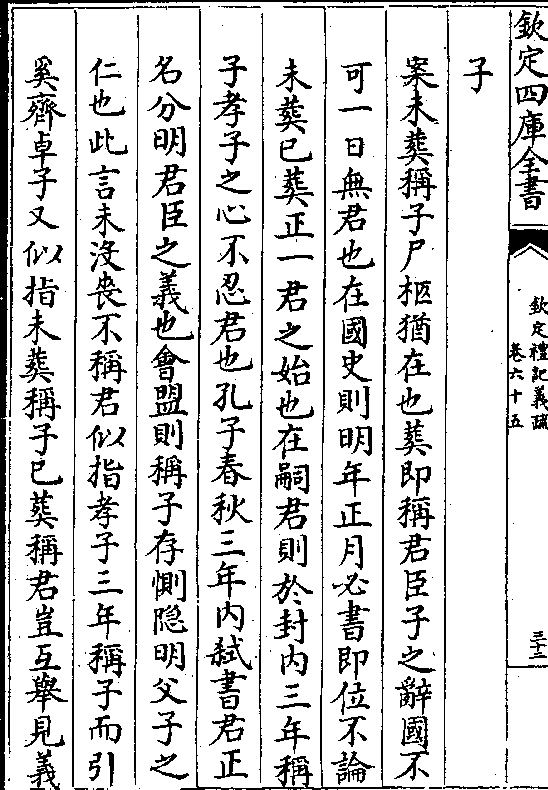 欽定四庫全書
欽定禮記義疏
卷六十五
三十二
子
案未葬稱子尸柩猶在也葬即稱君臣子之辭國不
可一日無君也在國史則明年正月必書即位不論
未葬已葬正一君之始也在嗣君則於封内三年稱
子孝子之心不忍君也孔子春秋三年内弑書君正
名分明君臣之義也會盟則稱子存惻隐明父子之
仁也此言未沒喪不稱君似指孝子三年稱子而引
奚齊卓子又似指未葬稱子已葬稱君豈互舉見義